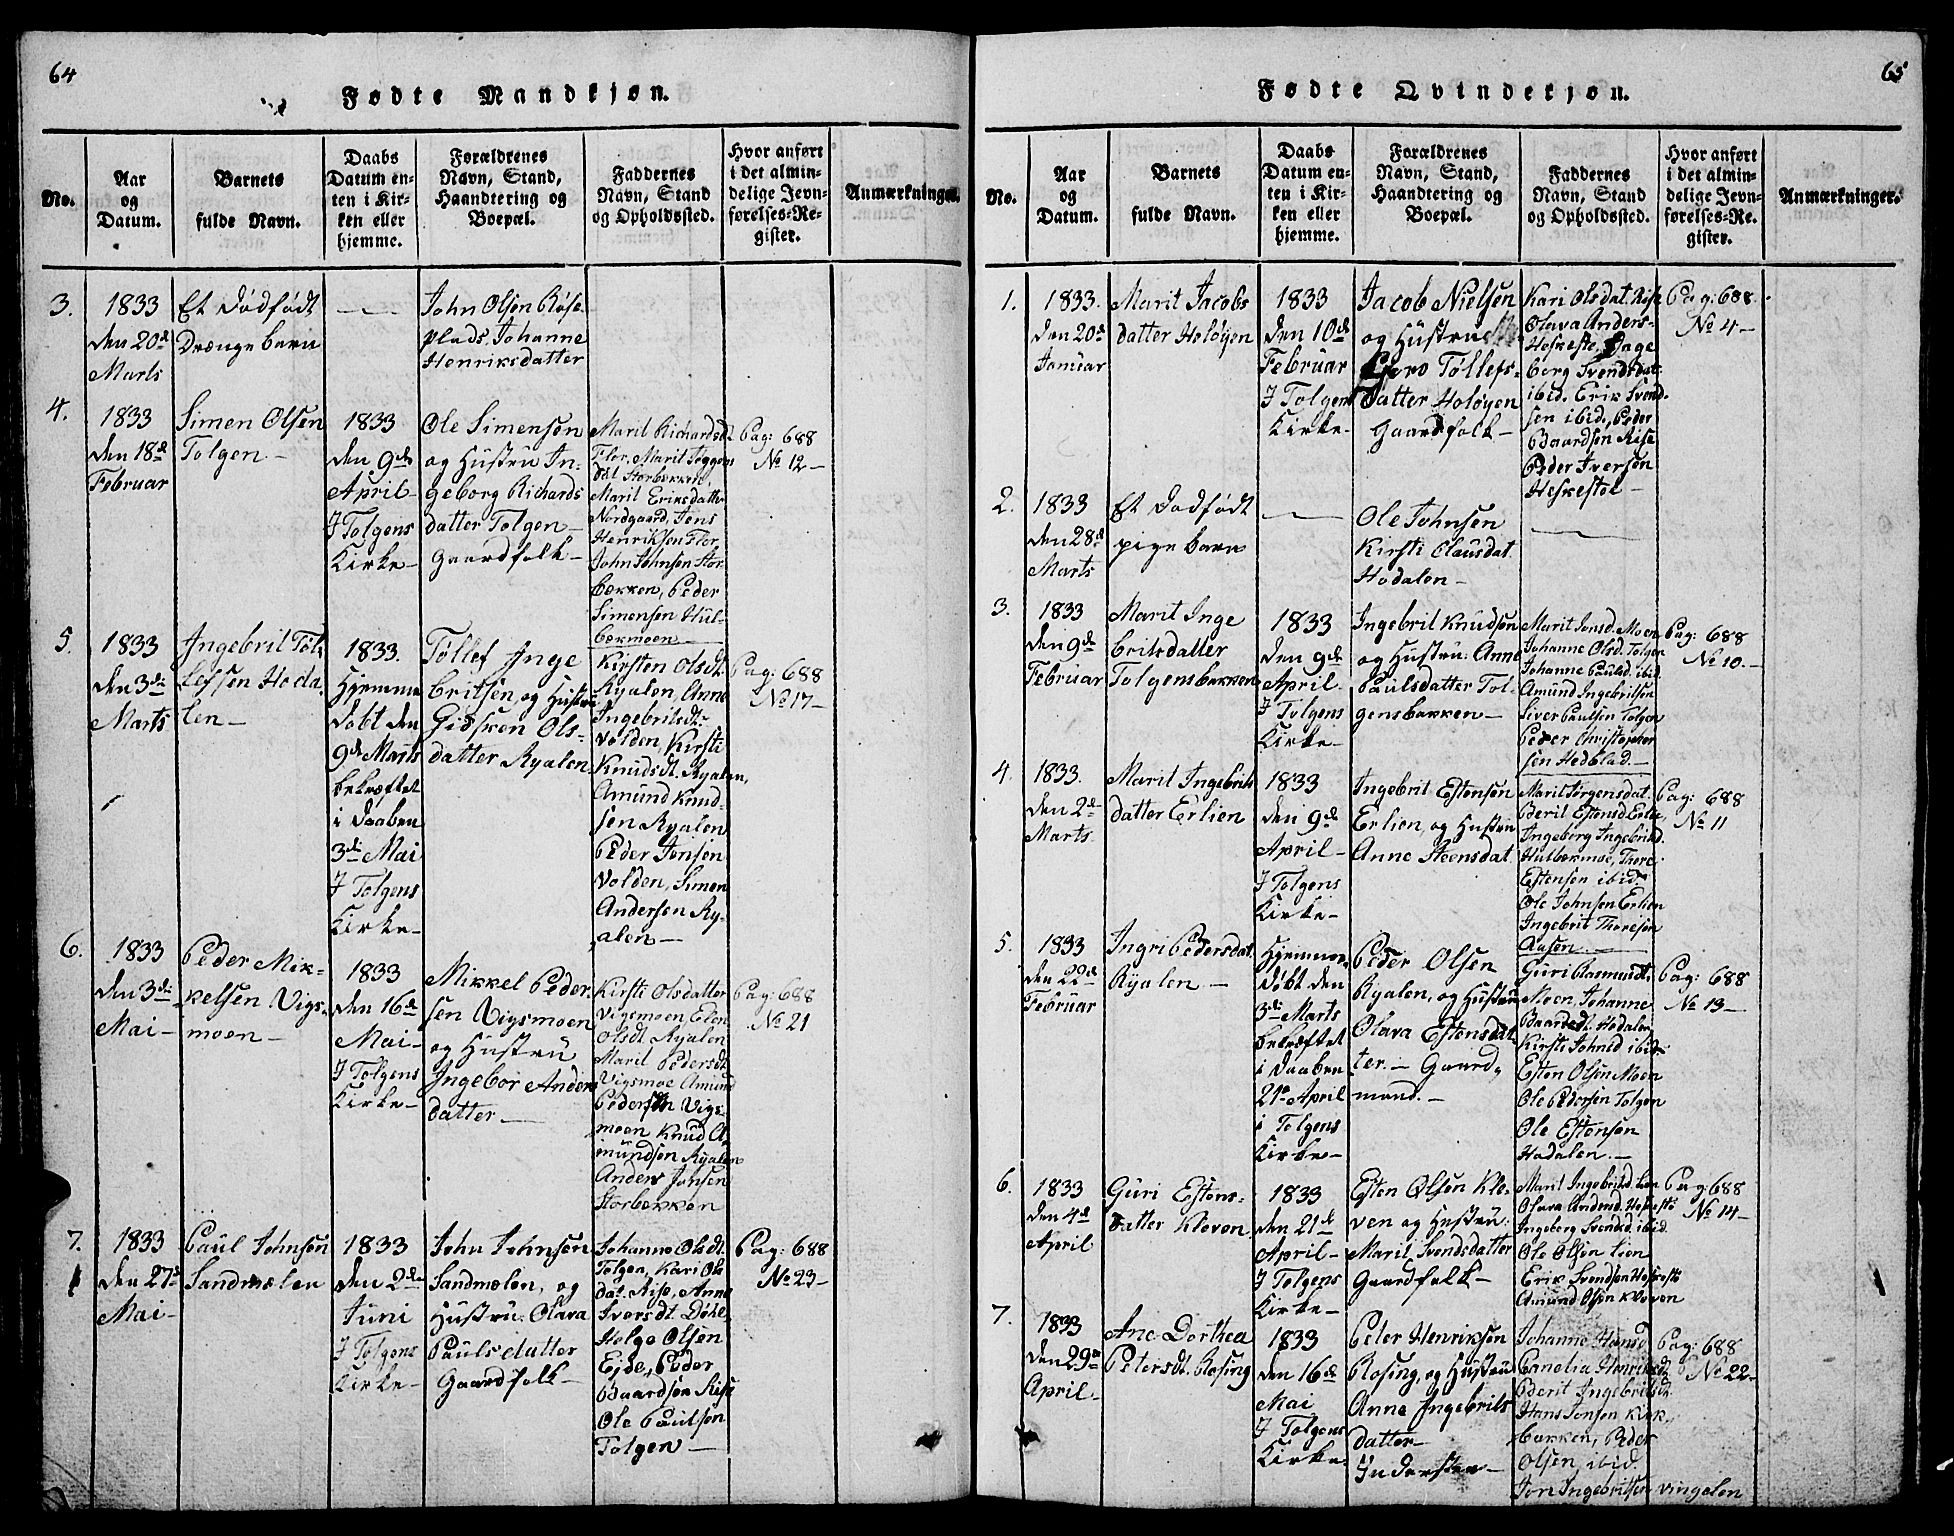 64
Fødte Mandkjøn.
No.
Aar
og
Datum.
Barnets
fulde Navn.
Daabs
Datum en-
ten i Kir-
ken eller
hjemme.
Forældrenes
Navn, Stand,
Haandtering og
Boepæl.
Faddernes
Navn, Stand
og Opholdssted.
Hvor anført
i det almin-
delige Jevn-
førelses-Re-
gister.
Anmærkninger.
3.
1833
den 20de
Marts
Et dødfødt
Drængebarn
John Olsen Røse
plads, Johanne
Henriksdatter
4.
1833
den 18de
Februar
Simen Olsen
Tolgen. -
1833
den 9de
April -
I Tolgens
Kirke -
Ole Simensen
og Hustru In-
geborg Richards
datter Tolgen -
Gaardfolk -
Marit Richardsdt
Flor, Marit Seggens
dat Storbekken,
Marit Eriksdatter
Nordgaard, Jens
Henriksen Flor
John Johnsen Stor
bekken, Peder
Simensen Hul-
bækmoen -
Pag: 688
No 12 -
5.
1833
den 3die
Marts
Ingebrit Tøl-
lefsen Hoda
len -
1833.
Hjemme
døbt den
9de Marts
bekræftet
i Daaben
3die Mai
I Tolgens
Kirke -
Tøllef Inge
britsen, og Hustru
Gidsken Ols-
datter Ryalen
Kirsten Olsdt
Ryalen, Anne
Ingebritsdt
Volden, Kirsti
Knudsdt. Ryalen,
Amund Knud-
sen Ryalen
Peder Jonsen
Volden, Simen
Andersen Ry-
alen -
Pag: 688
No 17 -
6.
1833
den 3die
Mai -
Peder Mik-
kelsen Vigs-
moen -
1833
den 16de
Mai -
I Tolgens
Kirke -
Mikkel Peder
sen Vigsmoen
og Hustru
Ingebor Anders
datter -
Kirsti Olsdatter
Vigsmoen Elen
Olsdt Ryalen
Marit Pedersdt
Vigsmoe Amund
Pedersen Vigs-
moen Knud A
mundsen Ryalen
Anders Jonsen
Storbekken
Pag: 688
No 21
7.
1833
den 27de
Mai -
Paul Johnsen
Sandmælen
1833
den 2den
Juni
I Tolgens
Kirke -
John Johnsen
Sandmælen, og
Hustru: Olava
Paulsdatter
Gaardfolk -
Johanne Olsdt.
Tolgen, Kari Ols
dat. Rise, Anne
Iversdt. Døhl,
Holge Olsen
Eide, Peder
Baardsen Rise
Ole Paulsen
Tolgen -
Pag: 688
No 23 -
65
Fødte Qvindekjøn.
No.
Aar
og
Datum.
Barnets
fulde Navn.
Daabs
Datum en-
ten i Kir-
ken eller
hjemme.
Forældrenes
Navn, Stand,
Haandtering og
Boepæl.
Faddernes
Navn, Stand
og Opholdssted.
Hvor anført
i det almin-
delige Jevn-
førelses-Re-
gister.
Anmærkninger.
1.
1833.
den 20de
Januar
Marit Jacobs
datter Holøyen
1833
den 10de
Februar
I Tolgens
Kirke -
Jacob Nielsen
og Hustru
Gjøro Tøllefs-
datter Holøyen
Gaardfolk -
Kari Olsdat. Rise
Olava Anders-
Heskeste, Inge
borg Svendsdat.
ibid. Erik Svend-
sen ibid., Peder
Baardsen Rise
Peder Iversen
Heskestol -
Pag: 688
No 4 -
2.
1833
den 28de
Marts
Et Dødfødt
pigebarn
Ole Johnsen
Kirsti Clausdat
Hodalen -
3.
1833
den 9de
Februar
Marit Inge
britsdatter
Tolgensbakken
1833
den 9de
April
I Tolgens
Kirke -
Ingebrit Knudsen
og Hustru: Anne
Paulsdatter Tol-
gensbakken -
Marit Jonsd. Moen
Johanne Olsd. Tolgen
Johanne Paulsd. ibid.
Amund Ingebritsen
Siver Paulsen Tolgen
Peder Christopher
sen Hedblad -
Pag: 688
No 10. -
4.
1833.
den 2den
Marts.
Marit Ingebrits
datter Erlien
1833
den 9de
April -
I Tolgens
Kirke -
Ingebrit Estensen
Erlien, og Hustru
Anne Steensdat.
Marit Jørgensdat.
Berit Estensd Erlie,
Ingeborg Ingebritsd.
Hulbækmoe, Thore
Estensen ibid.
Ole Johnsen Erlien
Ingebrit Thoresen
Aasen. -
Pag: 688
No 11
5.
1833
den 22de
Februar
Ingri Pedersdat.
Ryalen -
Hjemme-
døbt den
3die Marts
bekræftet
i Daaben
21de April
i Tolgens
Kirke -
Peder Olsen
Ryalen, og Hustru
Olava Estensdat-
ter. - Gaard-
mand. -
Guri Rasmusdt.
Moen, Johanne
Baardsdt. Hodalen
Kirsti Johnsd ibid
Esten Olsen Moen
Ole Pedersen Tolgen
Ole Estensen
Hodalen. -
Pag: 688
No 13 -
6.
1833
den 4de
April
Guri Estens-
datter Kleven
1833
den 21de
April -
I Tolgens
Kirke -
Esten Olsen Kle-
ven og Hustru:
Marit Svendsdatter
Gaardfolk -
Marit Ingebritsd. Lien
Olava Andersd. Heskeste
Ingeborg Svendsd. ibid.
Ole Olsen Lien
Erik Svendsen Heskeste
Amund Olsen Kleven
Pag: 688
No 14 -
7.
1833
den 29de
April -
Ane Dorthea
Petersdt. Rosing
1833
den 16de
Mai
I Tolgens
Kirke -
Peter Henriksen
Rosing, og Hustru
Anne Ingebrits
datter -
Inderster -
Johanne Hansd
Pernelia Henriksdt
Berit Ingebritsdt.
Hans Jonsen Kirk-
bakken, Peder
Olsen, ibid.
Jon Ingebritsen Vingelen
Pag: 688
No 22 -